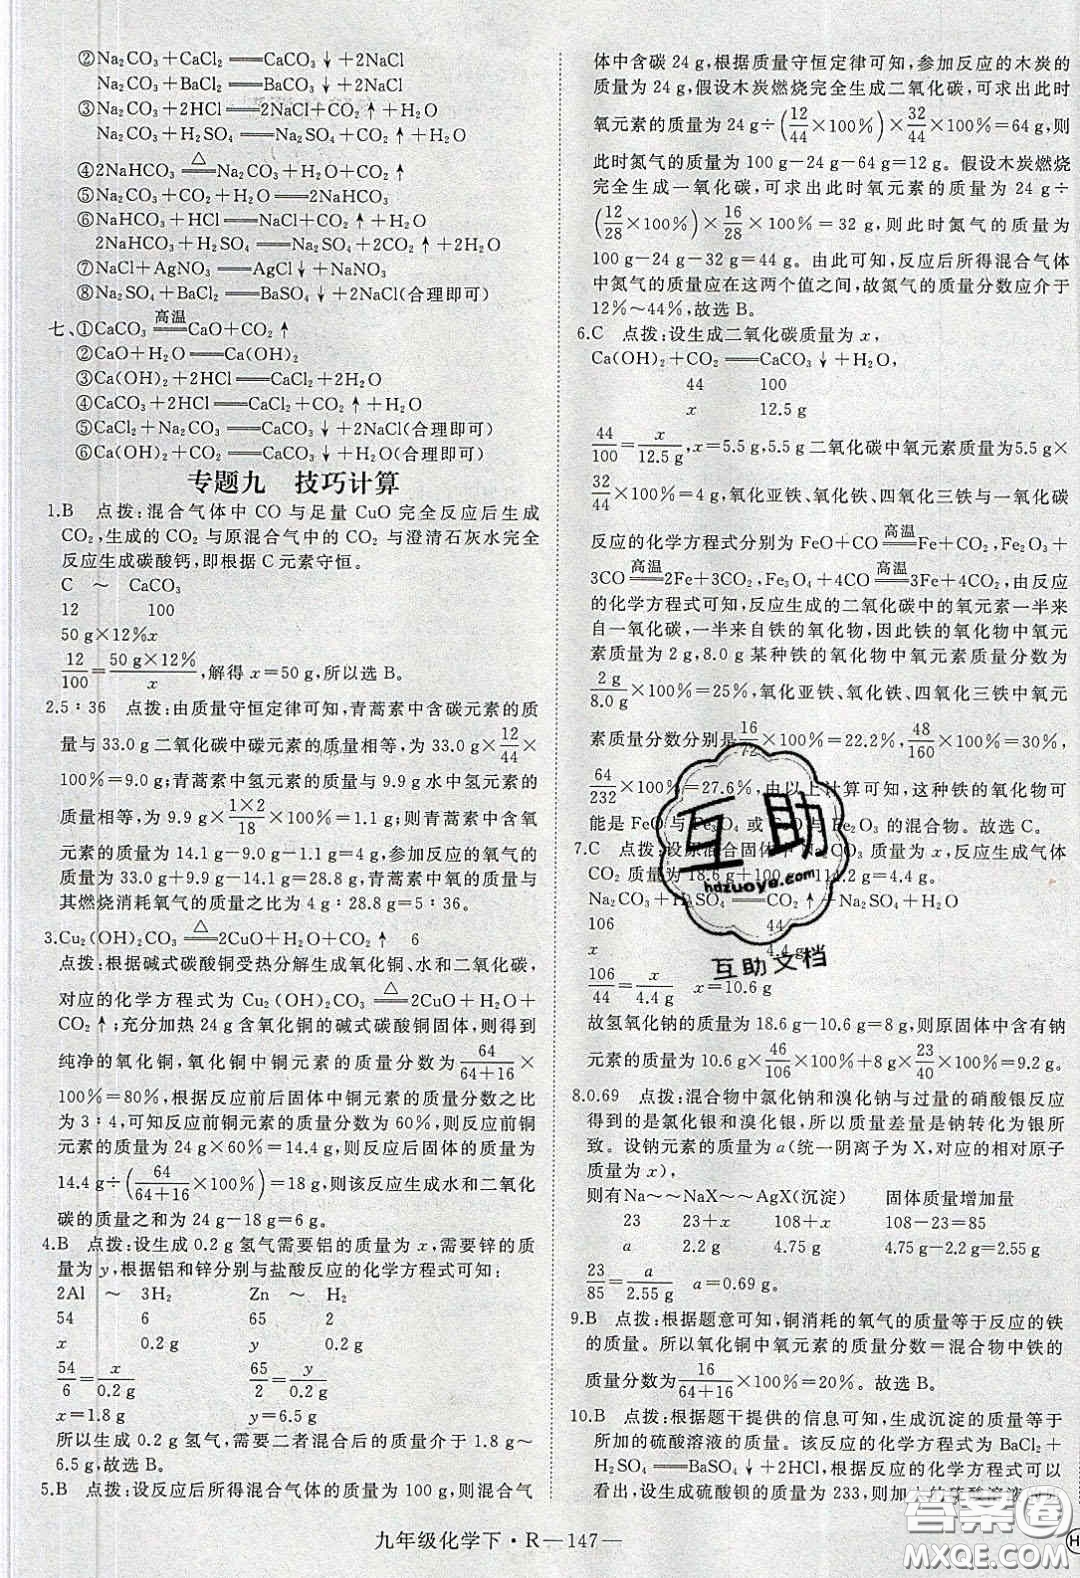 ②Na₂CO₃+CaCl₂══CaCO₃↓+2NaCl
Na₂CO₃+BaCl₂══BaCO₃↓+2NaCl
③Na₂CO₃+2HCl══2NaCl+CO₂↑+H₂O
Na₂CO₃+H₂SO₄══Na₂SO₄+CO₂↑+H₂O
④2NaHCO₃ △══ Na₂CO₃+CO₂↑+H₂O
⑤Na₂CO₃+CO₂+H₂O══2NaHCO₃
⑥NaHCO₃+HCl══NaCl+CO₂↑+H₂O
2NaHCO₃+H₂SO₄══Na₂SO₄+2CO₂↑+2H₂O
⑦NaCl+AgNO₃══AgCl↓+NaNO₃
⑧Na₂SO₄+BaCl₂══BaSO₄↓+2NaCl(合理即可)
七、①CaCO₃ 高温══ CaO+CO₂↑
②CaO+H₂O══Ca(OH)₂
③Ca(OH)₂+2HCl══CaCl₂+2H₂O
④CaCO₃+2HCl══CaCl₂+CO₂↑+H₂O
⑤CaCl₂+Na₂CO₃══CaCO₃↓+2NaCl(合理即可)
⑥Ca(OH)₂+CO₂══CaCO₃↓+H₂O(合理即可)
专题九 技巧计算
1.B 点拨:混合气体中 CO 与足量 CuO 完全反应后生成
CO₂,生成的 CO₂ 与原混合气中的 CO₂ 与澄清石灰水完全
反应生成碳酸钙,即根据 C 元素守恒。
C ~ CaCO₃
12 100
50 g×12% x
12/100=50 g×12%/x,解得 x=50 g,所以选 B。
2.5∶36 点拨:由质量守恒定律可知,青蒿素中含碳元素的质
量与 33.0 g 二氧化碳中碳元素的质量相等,为 33.0 g×12/44
×100%=9.0 g;青蒿素中氢元素的质量与 9.9 g 水中氢元素的
质量相等,为 9.9 g×(1×2)/18×100%=1.1 g;则青蒿素中氧
元素的质量为 14.1 g-9.0 g-1.1 g=4 g,参加反应的氧气的
质量为 33.0 g+9.9 g-14.1 g=28.8 g,青蒿素中氧的质量与
其燃烧消耗氧气的质量之比为 4 g∶28.8 g=5∶36。
3.Cu₂(OH)₂CO₃ △══ 2CuO+H₂O+CO₂↑ 6
点拨:根据碱式碳酸铜受热分解生成氧化铜、水和二氧化碳,
对应的化学方程式为 Cu₂(OH)₂CO₃ △══ 2CuO+H₂O+
CO₂↑;充分加热 24 g 含氧化铜的碱式碳酸铜固体,则得到
纯净的氧化铜,氧化铜中铜元素的质量分数为 64/(64+16)×
100%=80%,根据反应前后固体中铜元素的质量分数之比
为 3∶4,可知反应前铜元素的质量分数为 60%,则反应前铜
元素的质量为 24 g×60%=14.4 g,则反应后固体的质量为
14.4 g÷(64/(64+16)×100%)=18 g,则该反应生成水和二氧化
碳的质量之和为 24 g-18 g=6 g。
4.B 点拨:设生成 0.2 g 氢气需要铝的质量为 x,需要锌的质
量为 y,根据铝和锌分别与盐酸反应的化学方程式可知:
2Al ~ 3H₂ Zn ~ H₂
54 6 65 2
x 0.2 g y 0.2 g
54/6=x/0.2 g 65/2=y/0.2 g
x=1.8 g y=6.5 g
所以生成 0.2 g 氢气,需要二者混合后的质量介于 1.8 g~
6.5 g,故选 B。
5.B 点拨:设反应后所得混合气体的质量为 100 g,则混合气
体中含碳 24 g,根据质量守恒定律可知,参加反应的木炭的
质量为 24 g,假设木炭燃烧完全生成二氧化碳,可求出此时
氧元素的质量为 24 g÷(12/44×100%)×32/44×100%=64 g,则
此时氮气的质量为 100 g-24 g-64 g=12 g。假设木炭燃烧
完全生成一氧化碳,可求出此时氧元素的质量为 24 g÷
(12/28×100%)×16/28×100%=32 g,则此时氮气的质量为
100 g-24 g-32 g=44 g。由此可知,反应后所得混合气体
中氮气的质量应在这两个值之间,故氮气的质量分数应介于
12%~44%,故选 B。
6.C 点拨:设生成二氧化碳质量为 x,
Ca(OH)₂+CO₂══CaCO₃↓+H₂O,
44 100
x 12.5 g
44/100=x/12.5 g,x=5.5 g,5.5 g 二氧化碳中氧元素质量为5.5 g×
32/44×100%=4 g,氧化亚铁、氧化铁、四氧化三铁与一氧化碳
反应的化学方程式分别为 FeO+CO 高温══ Fe+CO₂、Fe₂O₃+
3CO 高温══ 2Fe+3CO₂、Fe₃O₄+4CO 高温══ 3Fe+4CO₂,由反应
的化学方程式可知,反应生成的二氧化碳中的氧元素一半来
自一氧化碳,一半来自铁的氧化物,因此铁的氧化物中氧元
素质量为 2 g,8.0 g 某种铁的氧化物中氧元素质量分数为
2 g/8.0 g×100%=25%,氧化亚铁、氧化铁、四氧化三铁中氧元
素质量分数分别是16/72×100%=22.2%,48/160×100%=30%,
64/232×100%=27.6%,由以上计算可知,这种铁的氧化物可
能是 FeO 与 Fe₃O₄ 或 FeO 与 Fe₂O₃ 的混合物。故选 C。
7.C 点拨:设原混合固体中 Na₂CO₃ 质量为 x,反应生成气体
CO₂ 质量为 18.6 g+100 g-114.2 g=4.4 g。
Na₂CO₃+H₂SO₄══CO₂↑+Na₂SO₄+H₂O
106 44
x 4.4 g
106/44=x/4.4 g x=10.6 g
故氢氧化钠的质量为 18.6 g-10.6 g=8 g,则原固体中含有钠
元素的质量为 10.6 g×46/106×100%+8 g×23/40×100%=9.2 g。
8.0.69 点拨:混合物中氯化钠和溴化钠与过量的硝酸银反应
得到的是氯化银和溴化银,所以质量差量是钠转化为银所
致。设钠元素的质量为 a(统一阴离子为 X,对应的相对原子
质量为 x),
则有Na~~NaX~~AgX(沉淀) 固体质量增加量
23 23+x 108+x 108-23=85
a 2.2 g 4.75 g 4.75 g-2.2 g=2.55 g
23/85=a/2.55 g a=0.69 g。
9.B 点拨:根据题意可知,铜消耗的氧气的质量等于反应的铁
的质量。所以氧化铜中氧元素的质量分数=混合物中铁的
质量分数为 16/(64+16)×100%=20%。故选 B。
10.B 点拨:根据题干提供的信息可知,生成沉淀的质量等于
所加的硫酸溶液的质量。该反应的化学方程式为 BaCl₂+
H₂SO₄══BaSO₄↓+2HCl,根据反应的化学方程式可以
看出,设生成硫酸钡的质量为 233,则加入的硫酸溶液
九年级化学下·R—147—
互助
hdzuoye.com
互助文档
答案圈
MXQE.COM
H